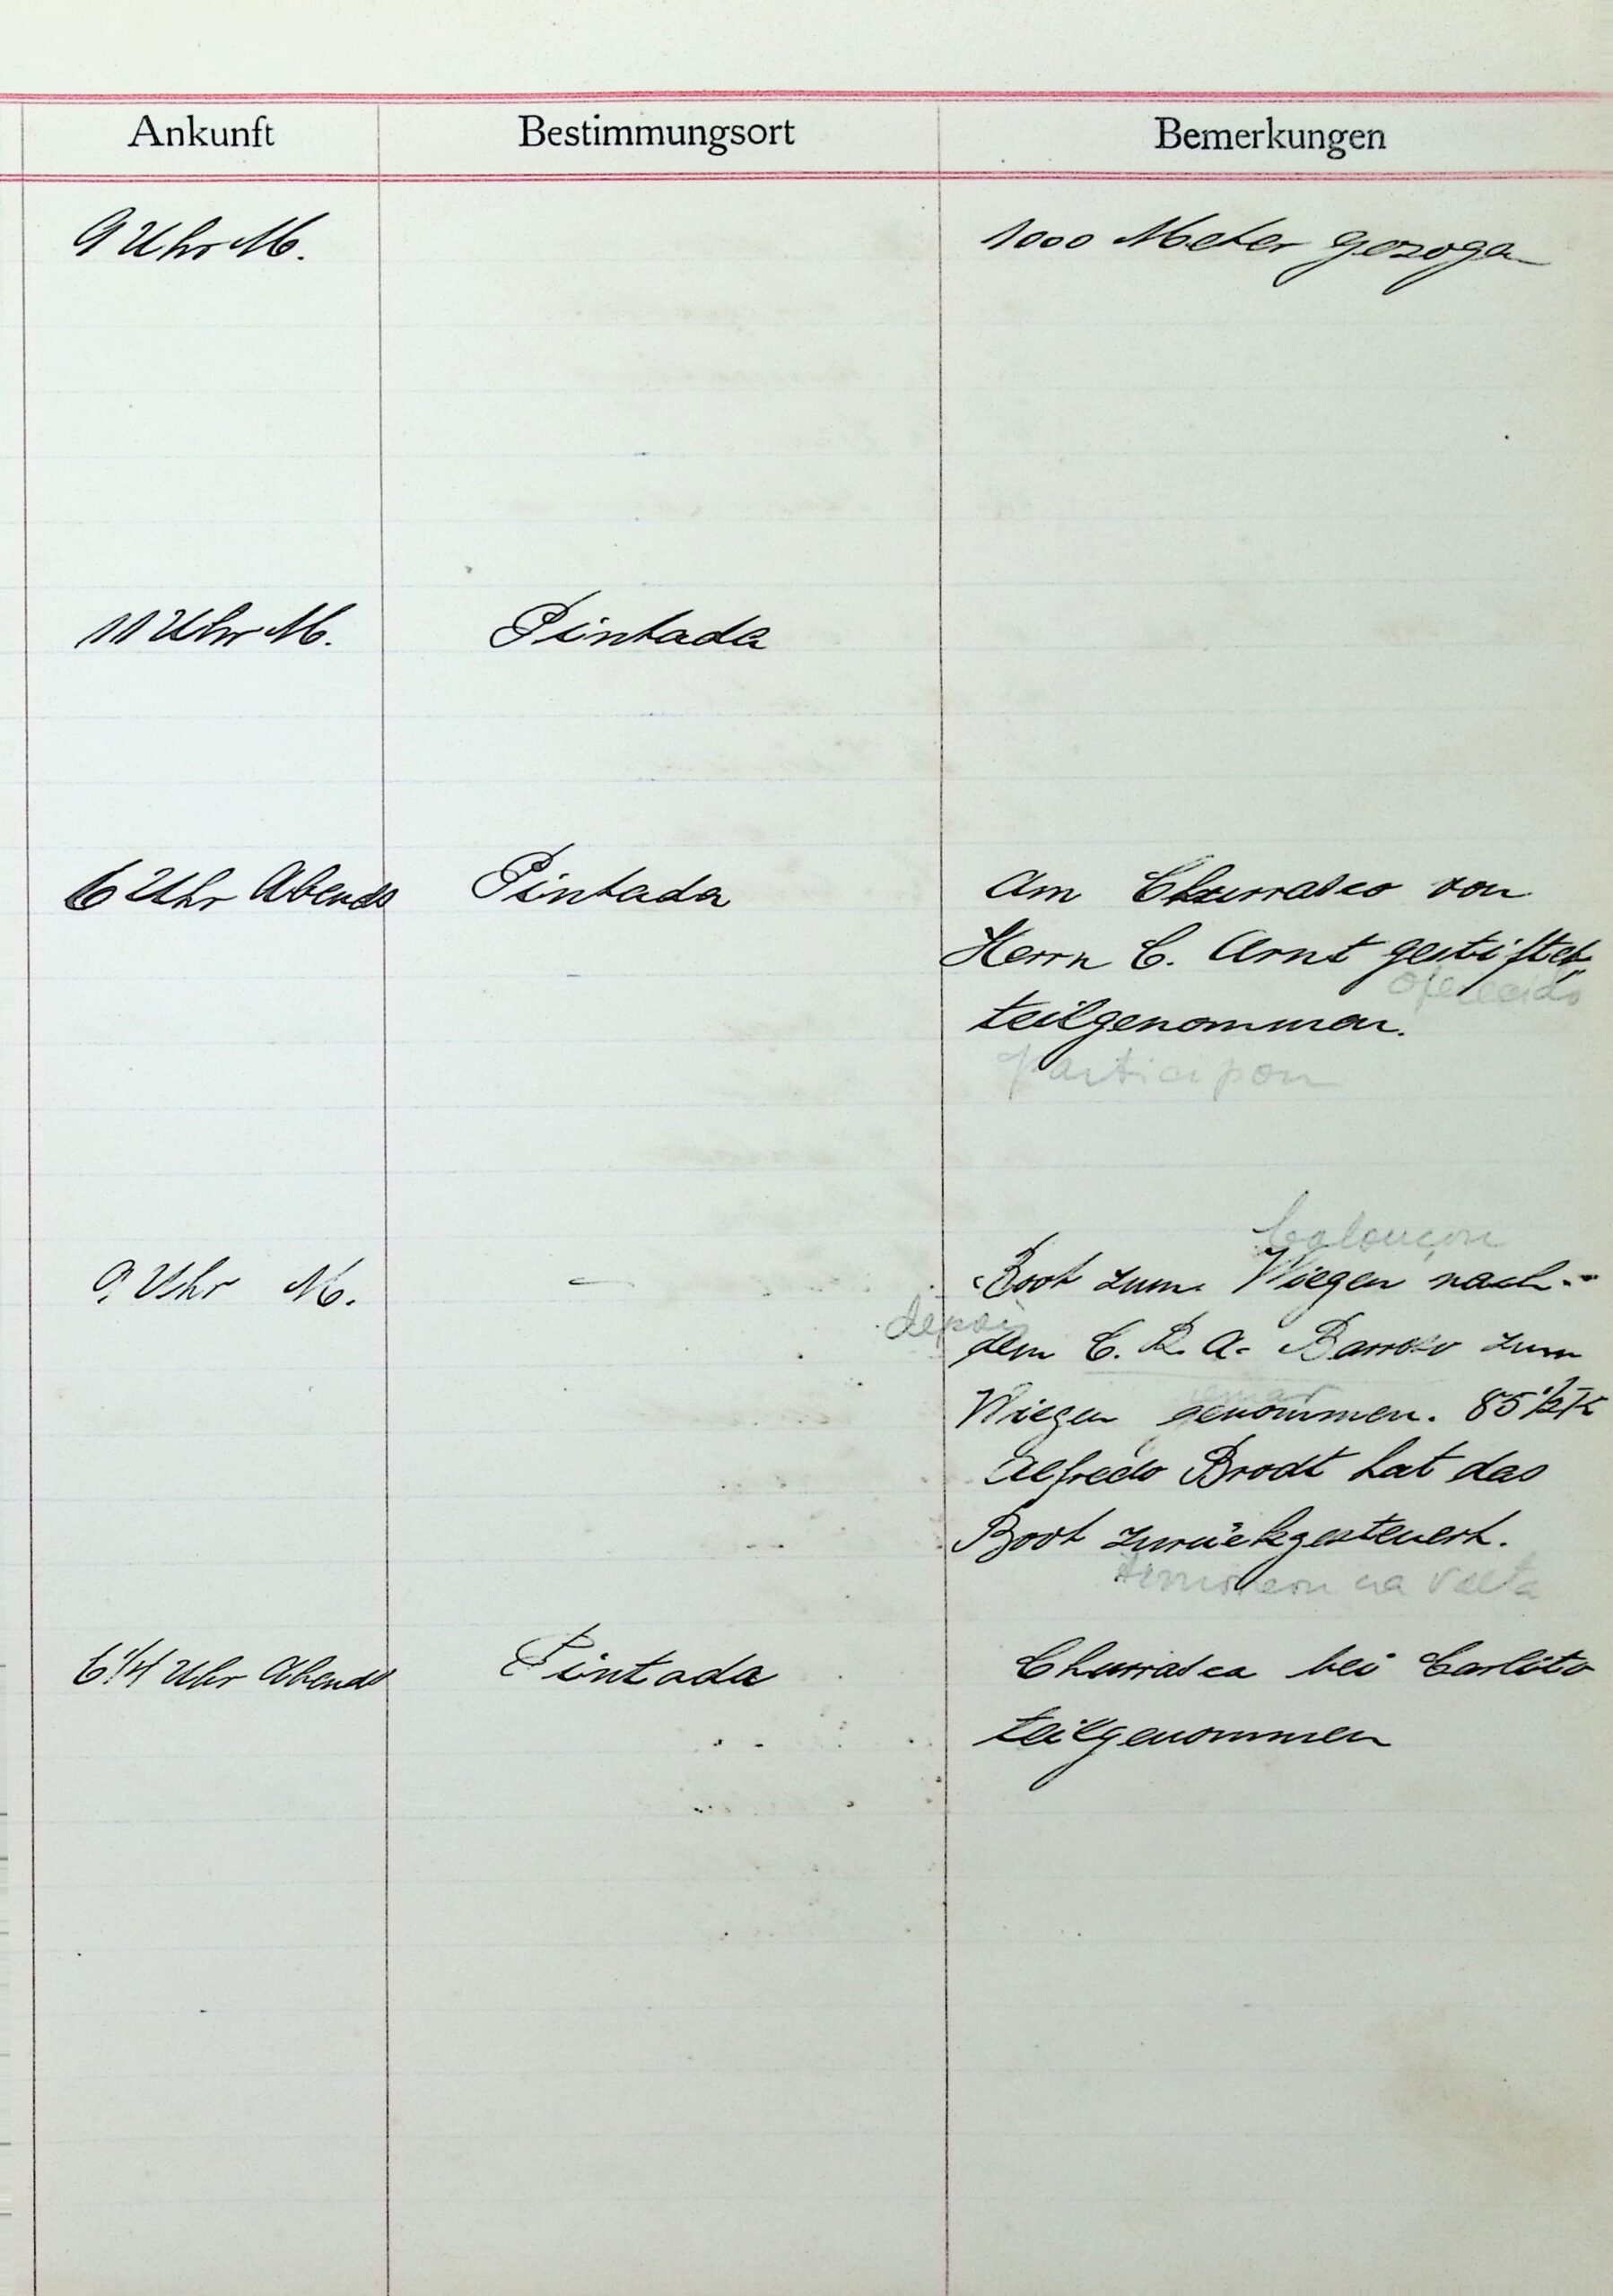 Ankunft Bestimmungsort Bemerkungen
9 Uhr M. 1000 Meter gezogen
11 Uhr M. Pintada
6 Uhr Abends Pintada Am Churrasco von
Herrn C. Arnt gestiftet,
oferecido
teilgenommen.
Participou
9 Uhr M. — Boot zum Wiegen nach-
depois
dem C. R. A. Barroso zum
Wiegen genommen. 85 1/2 K
Alfredo Brodt hat das
Boot zurückgesteuert.
na volta
6 1/4 Uhr Abends Pintada Churrasca bei Carlito
teilgenommen